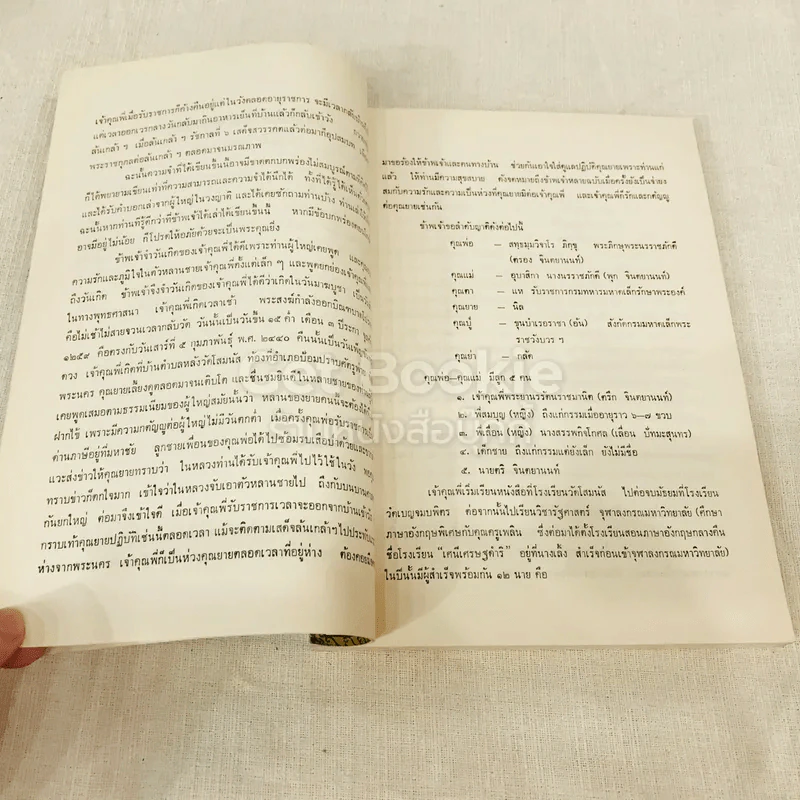 เจ้าคุณพี่เมื่อรับราชการก็ค้างคืนอยู่แต่ในวังตลอดอายุราชการ จะมีเวลากลับ
แต่เวลาออกเวรกลางวันกลับมากินอาหารเย็นที่บ้านแล้วก็กลับเข้าวัง
ล้นเกล้า ฯ เมื่อล้นเกล้า ฯ รัชกาลที่ ๖ เสด็จสวรรคตแล้วต่อมาก็อุปสมบท
พระราชกุศลต่อล้นเกล้า ฯ ตลอดมาจนมรณภาพ
ฉะนั้นความจำที่ได้เขียนขึ้นนี้อาจมีขาดตกบกพร่องไม่สมบูรณ์ตาม
ก็ได้พยายามเขียนเท่าที่ความสามารถและความจำได้นึกได้ ทั้งที่ได้รู้ได้เห็น
และได้รับคำบอกเล่าจากผู้ใหญ่ในวงญาติ และได้เคยซักถามท่านบ้าง ท่าน
ฉะนั้นหากท่านที่รู้ดีกว่าที่ข้าพเจ้าได้เล่าได้เขียนขึ้นนี้ หากมีข้อบกพร่อง
อาจมีอยู่ไม่น้อย ก็โปรดให้อภัยด้วยจะเป็นพระคุณยิ่ง
ข้าพเจ้าจำวันเกิดของเจ้าคุณพี่ได้ดีเพราะท่านผู้ใหญ่เคยพูด และ
ความรักและภูมิใจในตัวหลานชายเจ้าคุณพี่ตั้งแต่เล็ก ๆ และพูดยกย่องเจ้าคุณพี่
ถึงวันเกิด ข้าพเจ้าจึงจำวันเกิดของเจ้าคุณพี่ได้ดีว่าเกิดในวันมาฆบูชา เป็นวัน
ในทางพุทธศาสนา เจ้าคุณพี่เกิดเวลาเช้า พระสงฆ์กำลังออกบิณฑบาต
คือไม่เช้าไม่สายจวนเวลากลับวัด วันนั้นเป็นวันขึ้น ๑๕ ค่ำ เดือน ๓ ปีระกา
๑๒๕๙ คือตรงกับวันเสาร์ที่ ๕ กุมภาพันธุ์ พ.ศ. ๒๔๔๐ คืนนั้นเป็นวันเพ็ญ
ดวง เจ้าคุณพี่เกิดที่บ้านตำบลหลังวัดโสมนัส ท้องที่อำเภอป้อมปราบศัตรูพ่าย
พระนคร คุณยายเลี้ยงดูตลอดมาจนเติบโต และชื่นชมยินดีในหลานชายของท่าน
เคยพูดเสมอตามธรรมเนียมของผู้ใหญ่สมัยนั้นว่า หลานของยายคนนี้จะต้องได้
ฝากไข้ เพราะมีความกตัญญูต่อผู้ใหญ่ไม่มีวันตกต่ำ เมื่อครั้งคุณพ่อรับราชการ
ด่านภาษีอยู่ที่มหาชัย ลูกชายเพื่อนของคุณพ่อได้ไปซ้อมรบเสือป่าด้วยและ
แวะส่งข่าวให้คุณยายทราบว่า ในหลวงท่านได้รับเจ้าคุณพี่ไปไว้ใช้ในวัง
ทราบข่าวก็ตกใจมาก เข้าใจว่าในหลวงจับเอาตัวหลานชายไป ถึงกับบนบานศาล
กันยกใหญ่ ต่อมาจึงเข้าใจดี เมื่อเจ้าคุณพี่รับราชการเวลาจะออกจากบ้านเข้าวัง
กราบเท้าคุณยายปฏิบัติเช่นนี้ตลอดเวลา แม้จะติดตามเสด็จล้นเกล้าฯ ไปประทับ
ห่างจากพระนคร เจ้าคุณพี่ก็เป็นห่วงคุณยายตลอดเวลาที่อยู่ห่าง ต้องคอย
มาขอร้องให้ข้าพเจ้าและคนทางบ้าน ช่วยกันเอาใจใส่ดูแลปฏิบัติคุณยายเพราะท่านแก่
แล้ว ให้ท่านมีความสุขสบาย ดังจดหมายถึงข้าพเจ้าหลายฉบับเมื่อครั้งยังเป็น
สมกับความรักและความเป็นห่วงที่คุณยายมีต่อเจ้าคุณพี่ และเจ้าคุณพี่ก็รักและกตัญญู
ต่อคุณยายเช่นกัน
ข้าพเจ้าขอลำดับญาติดังต่อไปนี้
คุณพ่อ – สทฺธมฺมวิจาโร ภิกฺขุ พระภิกษุพระนรราชภักดี
(ตรอง จินตยานนท์)
คุณแม่ – อุบาสิกา นางนรราชภักดี (พุก จินตยานนท์)
คุณตา – แห รับราชการกรมทหารมหาดเล็กรักษาพระองค์
คุณยาย – นิล
คุณปู่ – ขุนบำเรอราชา (อ้น) สังกัดกรมมหาดเล็กพระ
ราชวังบวร ฯ
คุณย่า – กลัด
คุณพ่อ-คุณแม่ มีลูก ๕ คน
๑. เจ้าคุณพี่พระยานรรัตนราชมานิต (ตรึก จินตยานนท์)
๒. พี่สมบุญ (หญิง) ถึงแก่กรรมเมื่ออายุราว ๖-๗ ขวบ
๓. พี่เลื่อน (หญิง) นางสรรพกิจโกศล (เลื่อน ปัทมะสุนทร)
๔. เด็กชาย ถึงแก่กรรมแต่ยังเล็ก ยังไม่มีชื่อ
๕. นายตริ จินตยานนท์
เจ้าคุณพี่เริ่มเรียนหนังสือที่โรงเรียนวัดโสมนัส ไปต่อจบมัธยมที่โรงเรียน
วัดเบญจมบพิตร ต่อจากนั้นไปเรียนวิชารัฐศาสตร์ จุฬาลงกรณมหาวิทยาลัย (ศึกษา
ภาษาอังกฤษพิเศษกับคุณครูเพลิน ซึ่งต่อมาได้ตั้งโรงเรียนสอนภาษาอังกฤษกลางคืน
ชื่อโรงเรียน "เศนีเศรษฐดำริ" อยู่ที่นางเลิ้ง สำเร็จก่อนเข้าจุฬาลงกรณมหาวิทยาลัย)
ในปีนั้นมีผู้สำเร็จพร้อมกัน ๑๒ นาย คือ